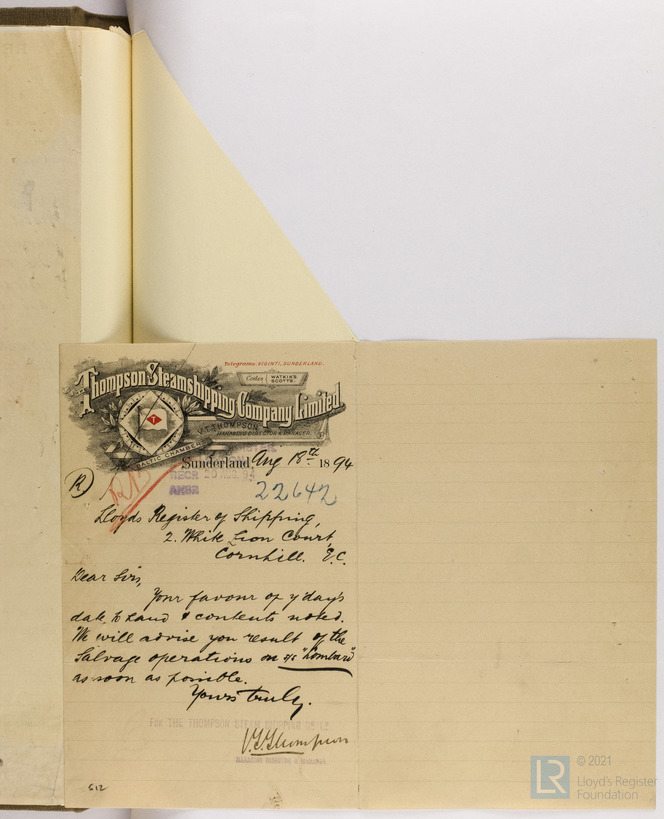 Telegrams: VIGINTI, SUNDERLAND.
Codes WATKIN'S SCOTTS.
The Thompson Steamshipping Company Limited.
V.T. THOMPSON
MANAGING DIRECTOR & MANAGER.
T
BALTIC CHAMBERS
Sunderland Aug 18th 1894
RECD 20 AUG. 94
ANSR
22642
R
Lloyds Register of Shipping,
2. White Lion Court,
Cornhill. E.C.
Dear Sirs,
Your favour of y'days
date to hand & contents noted.
We will advise you result of the
Salvage operations on s/s "Lombard"
as soon as possible.
Yours truly.
FOR THE THOMPSON STEAM SHIPPING CO LD
V.T. Thompson
MANAGING DIRECTOR & MANAGER
612
LR © 2021
Lloyd's Register
Foundation